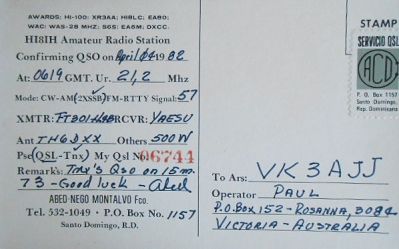 AWARDS: HI-100: XR3AA: HI8LC: EA80:
WAC: WAS-28 MHZ: S6S: EA6M: DXCC.
HI8IH Amateur Radio Station
Confirming QSO on April/04 1982
At: 0619 GMT. Ur. 21,2 Mhz
Mode: CW-AM (2XSSB) FM-RTTY Signal: 57
XMTR: FT301 RCVR: YAESU
Ant TH6DXX Others 500W
Pse (QSL - Tnx) My Qsl No. 06744
Remarks: Tnx's Qso on 15m.
73-Good luck - Abed
ABED-NEGO MONTALVO Fco.
Tel. 532-1049 - P.O. Box No. 1157
Santo Domingo, R.D.
STAMP
SERVICIO QSL
P. O. Box 1157
Santo Domingo,
Rep. Dominicana
To Ars: VK3AJJ
Operator PAUL
P.O. Box 152 - ROSANNA, 3084
VICTORIA - AUSTRALIA